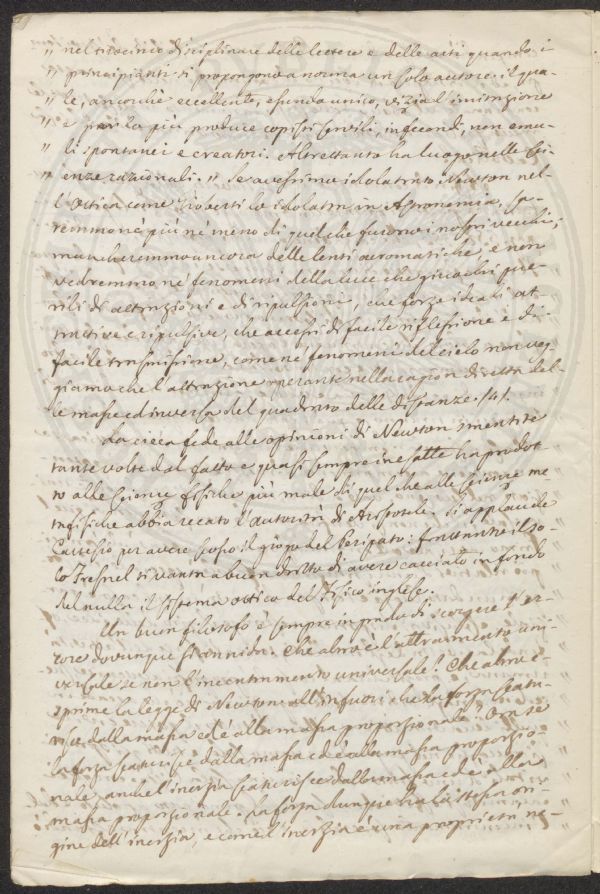 " nel tirocinio disciplinare delle lettere e delle arti quando i
" principianti si propongono a norma un solo autore, il qua-
" le, ancorchè eccellente, essendo unico, vizia l'imitazione
" e per lo più produce copisti servili, infecondi, non emu-
" li spontanei e creatori. Altrettanto ha luogo nelle sci-
" enze razionali. " Se avessimo idolatrato Newton nel-
l'Ottica come si idolatra in Astronomia, sa-
remmo nè più nè meno di quel che furono i nostri vecchi;
mancheremmo ancora delle lenti acromatiche, e non
vedremmo nè fenomeni della luce che giuochi pue-
rili di attrazioni e di ripulsioni, che forze ideali at-
trattive e ripulsive, che accessi di facile riflessione e di
facile trasmissione, come nè fenomeni del cielo non veg-
giamo che l'attrazione operante nella ragion diretta del-
le masse ed inversa del quadrato delle distanze. (4).
La cieca fede alle opinioni di Newton smentite
tante volte dal fatto e quasi sempre inesatte ha prodot-
to alle scienze fisiche più male di quel che alle scienze me-
tafisiche abbia recato l'autorità di Aristotele. Si applaude
Cartesio per avere scosso il giogo del Peripato: frattanto il so-
lo Fresnel si vanta a buon dritto di avere cacciato in fondo
del nulla il sistema ottico del Fisico inglese.
Un buon filosofo è sempre in grado di scorgere l'er-
rore dovunque si annida. Che altro è l'attraimento uni-
versale se non l'incentramento universale? Che altro e-
sprime la legge di Newton all'infuori che la forza scatu-
risce dalla massa ed è alla massa proporzionale? Ora se
la forza scaturisce dalla massa ed è alla massa proporzio-
nale, anche l'inerzia scaturisce dalla massa ed è alla
massa proporzionale. La forza dunque ha la stessa ori-
gine dell'inerzia, e come l'inerzia è una proprietà ne-